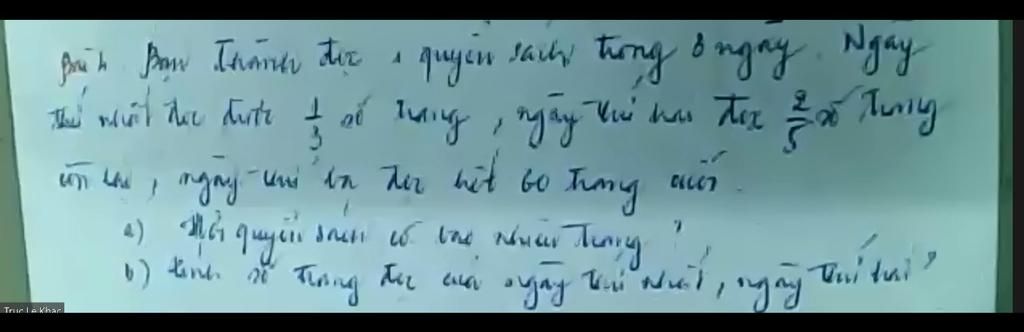 Bài 4. Bạn Thành đọc 1 quyển sách trong 3 ngày. Ngày
thứ nhất đọc được 1/3 số trang, ngày thứ hai đọc 2/5 số trang
còn lại, ngày thứ ba đọc hết 60 trang cuối.
a) Hỏi quyển sách có bao nhiêu trang?
b) tính số trang đọc của ngày thứ nhất, ngày thứ hai?
Truc Le Khac